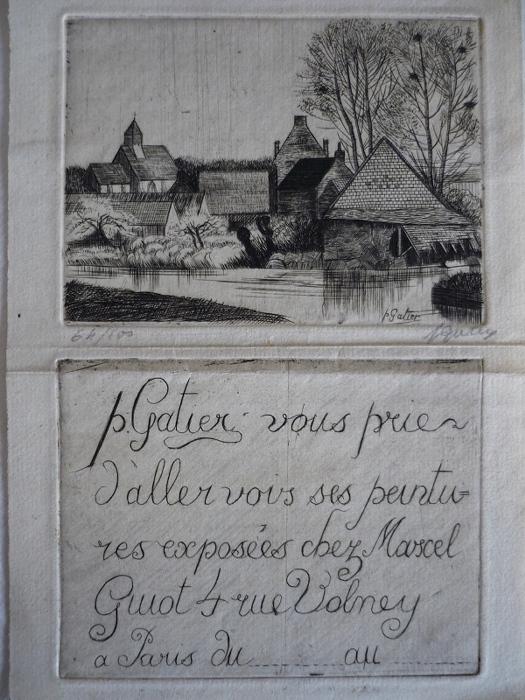 p. Gatier
64/100
p. Gatier vous prie
d'aller voir ses peintu=
res exposées chez Marcel
Guiot 4 rue Volney
a Paris du ............ au ............